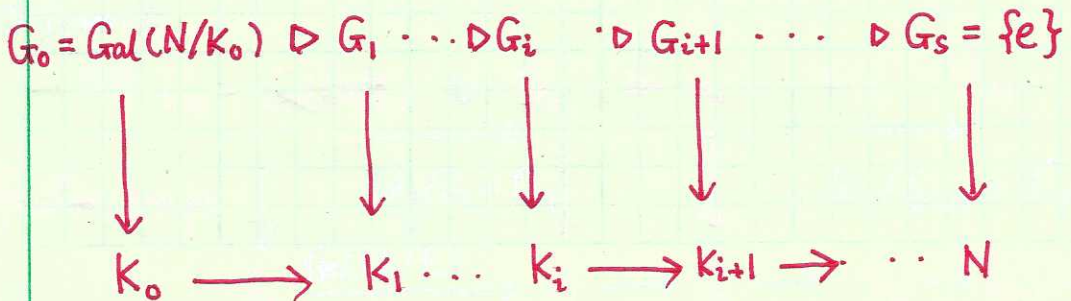 G₀ = Gal(N/K₀) ▷ G₁ ··· ▷ Gᵢ ·▷ Gᵢ₊₁ ··· ▷ Gₛ = {e}
K₀ → K₁ ··· Kᵢ → Kᵢ₊₁ → ·· N